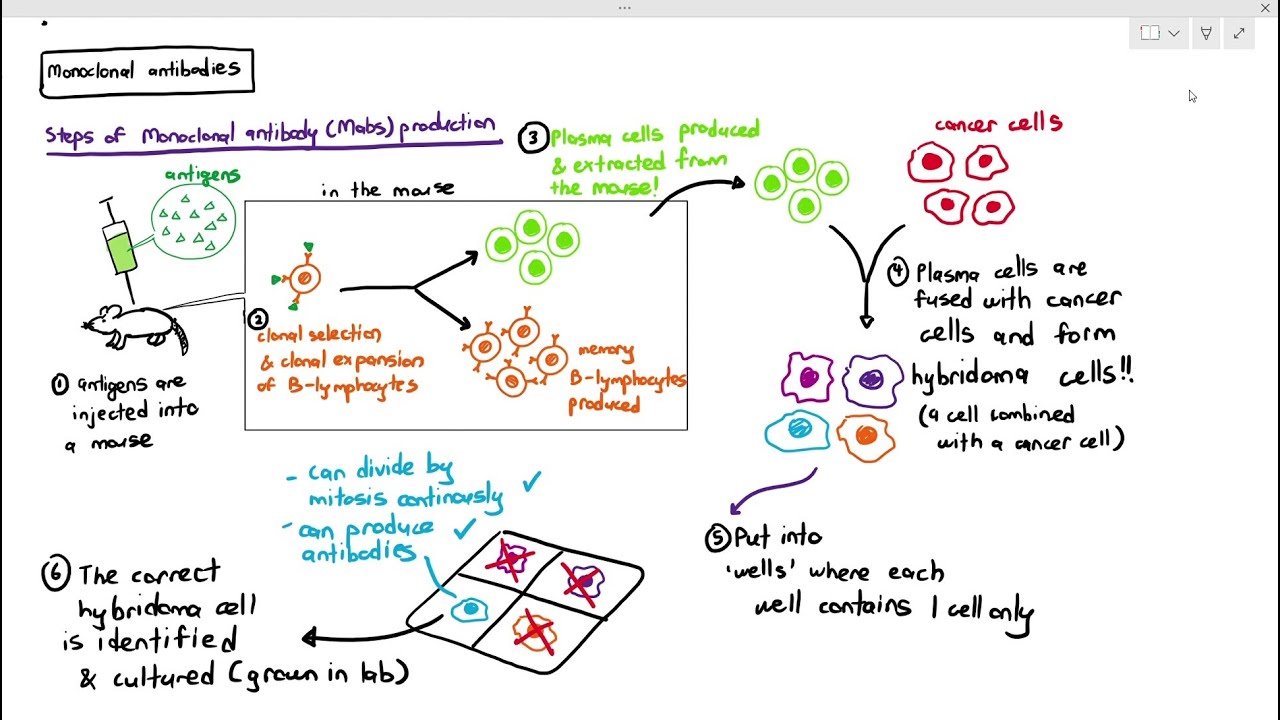 Monoclonal antibodies
Steps of Monoclonal antibody (Mabs) production
antigens
in the mouse
① antigens are
injected into
a mouse
②
clonal selection
& clonal expansion
of B-lymphocytes
memory
B-lymphocytes
produced
③ Plasma cells produced
& extracted from
the mouse!
cancer cells
④ Plasma cells are
fused with cancer
cells and form
hybridoma cells!!
(a cell combined
with a cancer cell)
⑤ Put into
'wells' where each
well contains 1 cell only
- can divide by
mitosis continously ✓
- can produce ✓
antibodies
⑥ The correct
hybridoma cell
is identified
& cultured (grown in lab)